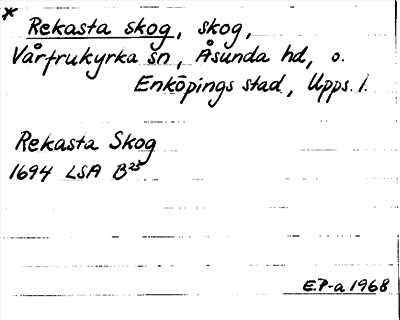 * Rekasta skog, skog,
Vårfrukyrka sn, Åsunda hd, o.
Enköpings stad, Upps. l.
Rekasta Skog
1694 LSA B25
E.P-a 1968